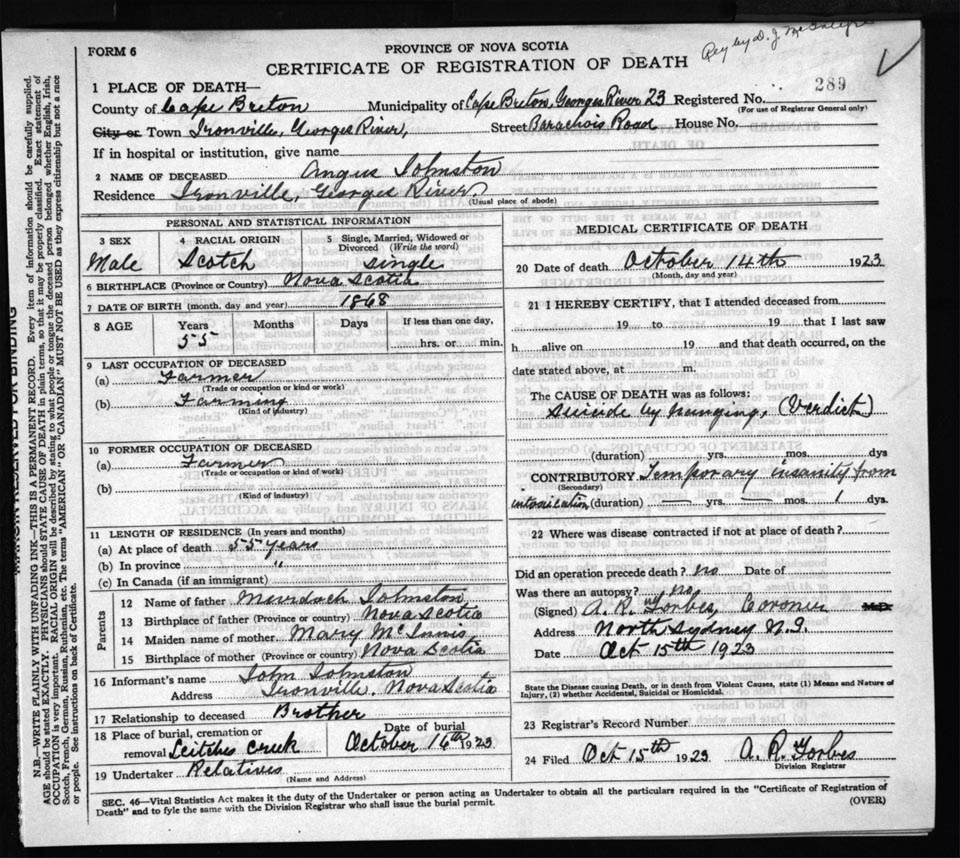 Reg by D. J. McIntyre
FORM 6
PROVINCE OF NOVA SCOTIA
CERTIFICATE OF REGISTRATION OF DEATH
1 PLACE OF DEATH—
289
County of Cape Breton Municipality of Cape Breton, Georges River 23 Registered No.
(For use of Registrar General only)
City or Town Ironville, Georges River, Street Barachois Road House No.
If in hospital or institution, give name
2 NAME OF DECEASED Angus Johnston
Residence Ironville, Georges River
(Usual place of abode)
PERSONAL AND STATISTICAL INFORMATION
3 SEX 4 RACIAL ORIGIN 5 Single, Married, Widowed or
Divorced (Write the word)
Male Scotch single
6 BIRTHPLACE (Province or Country) Nova Scotia
7 DATE OF BIRTH (month, day and year) 1868
8 AGE Years Months Days If less than one day,
55 hrs. or min.
9 LAST OCCUPATION OF DECEASED
(a) Farmer
(Trade or occupation or kind or work)
(b) Farming
(Kind of industry)
10 FORMER OCCUPATION OF DECEASED
(a) Farmer
(Trade or occupation or kind of work)
(b)
(Kind of industry)
11 LENGTH OF RESIDENCE (In years and months)
(a) At place of death 55 years
(b) In province "
(c) In Canada (if an immigrant)
Parents
12 Name of father Murdoch Johnston
13 Birthplace of father (Province or country) Nova Scotia
14 Maiden name of mother Mary McInnis
15 Birthplace of mother (Province or country) Nova Scotia
16 Informant's name John Johnston
Address Ironville, Nova Scotia
17 Relationship to deceased Brother
18 Place of burial, cremation or Date of burial
removal Leitches Creek October 16th 1923
19 Undertaker Relatives
(Name and Address)
MEDICAL CERTIFICATE OF DEATH
20 Date of death October 14th 1923
(Month, day and year)
21 I HEREBY CERTIFY, that I attended deceased from
19 to 19 that I last saw
h alive on 19 and that death occurred, on the
date stated above, at m.
The CAUSE OF DEATH was as follows:
Suicide by hanging, (Verdict)
(duration) yrs. mos. dys
CONTRIBUTORY Temporary insanity from
(Secondary)
intoxication (duration) — yrs. — mos. 1 dys.
22 Where was disease contracted if not at place of death?
Did an operation precede death? no Date of
Was there an autopsy? no
(Signed) A. R. Forbes, Coroner M.D.
Address North Sydney N.S.
Date Oct 15th 1923
State the Disease causing Death, or in death from Violent Causes, state (1) Means and Nature of
Injury, (2) whether Accidental, Suicidal or Homicidal.
23 Registrar's Record Number
24 Filed Oct 15th 1923 A. R. Forbes
Division Registrar
SEC. 46—Vital Statistics Act makes it the duty of the Undertaker or person acting as Undertaker to obtain all the particulars required in the "Certificate of Registration of
Death" and to fyle the same with the Division Registrar who shall issue the burial permit.
(OVER)
MARGIN RESERVED FOR BINDING
N.B.—WRITE PLAINLY WITH UNFADING INK—THIS IS A PERMANENT RECORD. Every item of information should be carefully supplied.
AGE should be stated EXACTLY. PHYSICIANS should STATE CAUSE OF DEATH in plain terms, so that it may be properly classified. Exact statement of
OCCUPATION is very important. RACIAL ORIGIN will be described by stating to what people or tongue the deceased person belonged whether English, Irish,
Scotch, French, German, Russian, Ruthenian, etc. The terms "AMERICAN" OR "CANADIAN" MUST NOT BE USED as they express citizenship but not a race
or people. See instructions on back of Certificate.